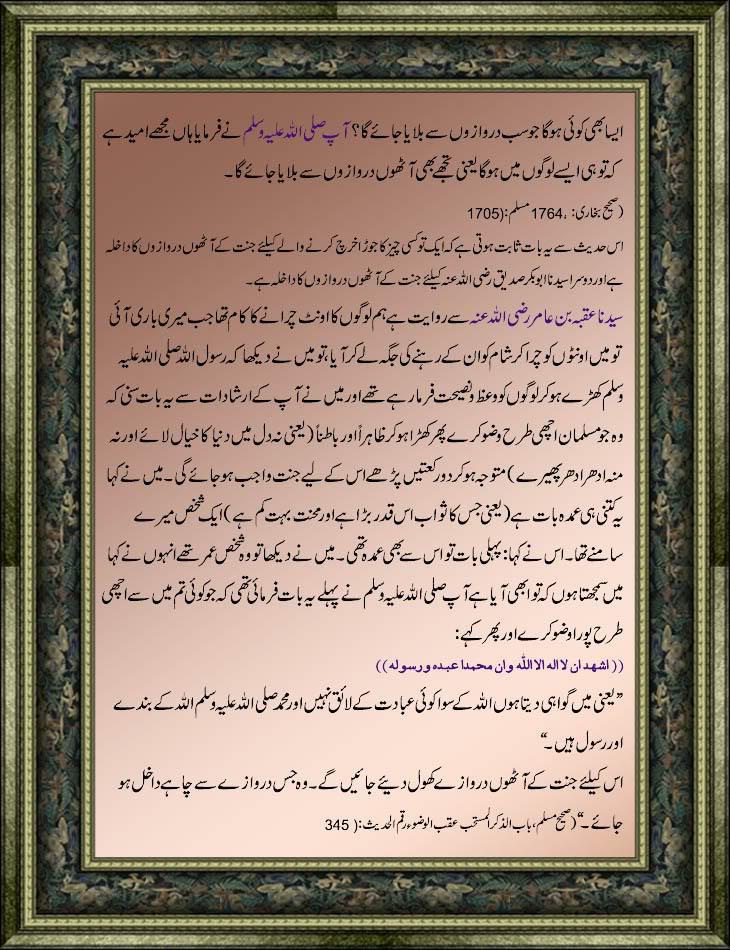 ایسا بھی کوئی ہوگا جو سب دروازوں سے بلایا جائے گا؟ آپ صلی اللہ علیہ وسلم نے فرمایا ہاں مجھے امید ہے
کہ تو ہی ایسے لوگوں میں ہوگا یعنی تجھے بھی آٹھوں دروازوں سے بلایا جائے گا۔
(صحیح بخاری: ،1764 مسلم:(1705
اس حدیث سے یہ بات ثابت ہوتی ہے کہ ایک تو کسی چیز کا جوڑا خرچ کرنے والے کیلئے جنت کے آٹھوں دروازوں کا داخلہ
ہے اور دوسرا سیدنا ابوبکر صدیق رضی اللہ عنہ کیلئے جنت کے آٹھوں دروازوں کا داخلہ ہے۔
سیدنا عقبہ بن عامر رضی اللہ عنہ سے روایت ہے ہم لوگوں کا اونٹ چرانے کا کام تھا جب میری باری آئی
تو میں اونٹوں کو چرا کر شام کو ان کے رہنے کی جگہ لے کر آیا، تو میں نے دیکھا کہ رسول اللہ صلی اللہ علیہ
وسلم کھڑے ہوکر لوگوں کو وعظ و نصیحت فرما رہے تھے اور میں نے آپ کے ارشادات سے یہ بات سنی کہ
وہ جو مسلمان اچھی طرح وضو کرے پھر کھڑا ہوکر ظاہراً اور باطناً (یعنی نہ دل میں دنیا کا خیال لائے اور نہ
منہ ادھر ادھر پھیرے) متوجہ ہوکر دو رکعتیں پڑھے اس کے لیے جنت واجب ہوجائے گی۔ میں نے کہا
یہ کتنی ہی عمدہ بات ہے (یعنی جس کا ثواب اس قدر بڑا ہے اور محنت بہت کم ہے) ایک شخص میرے
سامنے تھا۔ اس نے کہا: پہلی بات تو اس سے بھی عمدہ تھی۔ میں نے دیکھا تو وہ شخص عمر تھے انہوں نے کہا
میں سمجھتا ہوں کہ تو ابھی آیا ہے آپ صلی اللہ علیہ وسلم نے پہلے یہ بات فرمائی تھی کہ جو کوئی تم میں سے اچھی
طرح پورا وضو کرے اور پھر کہے:
((اشهد ان لا اله الا الله وان محمدا عبده ورسوله))
”یعنی میں گواہی دیتا ہوں اللہ کے سوا کوئی عبادت کے لائق نہیں اور محمد صلی اللہ علیہ وسلم اللہ کے بندے
اور رسول ہیں۔“
اس کیلئے جنت کے آٹھوں دروازے کھول دیئے جائیں گے۔ وہ جس دروازے سے چاہے داخل ہو
جائے۔“ (صحیح مسلم، باب الذکر المستحب عقب الوضوء رقم الحدیث: ( 345